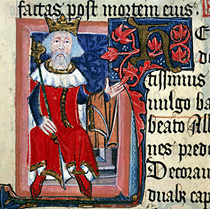 factas post mortem eius.
assimus
uulgo ba
beato Al
nes prede
Decorau